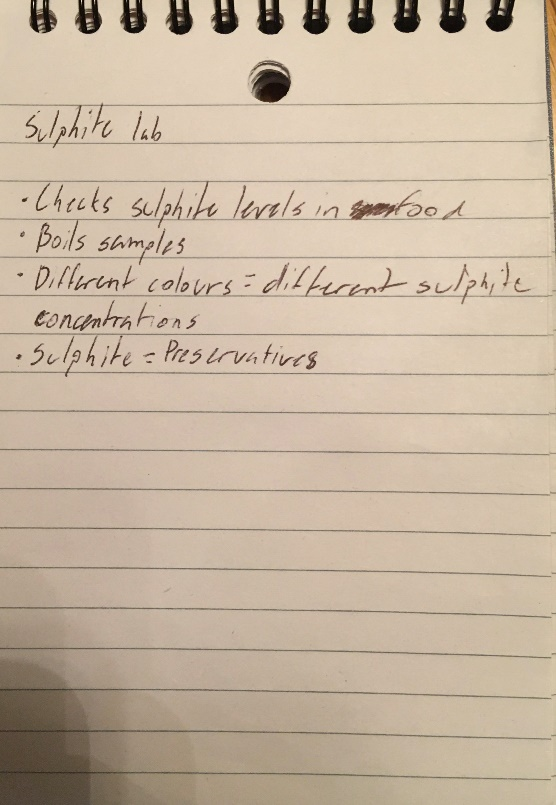 Sulphite lab
• Checks sulphite levels in food
• Boils samples
• Different colours = different sulphite
concentrations
• Sulphite = Preservatives